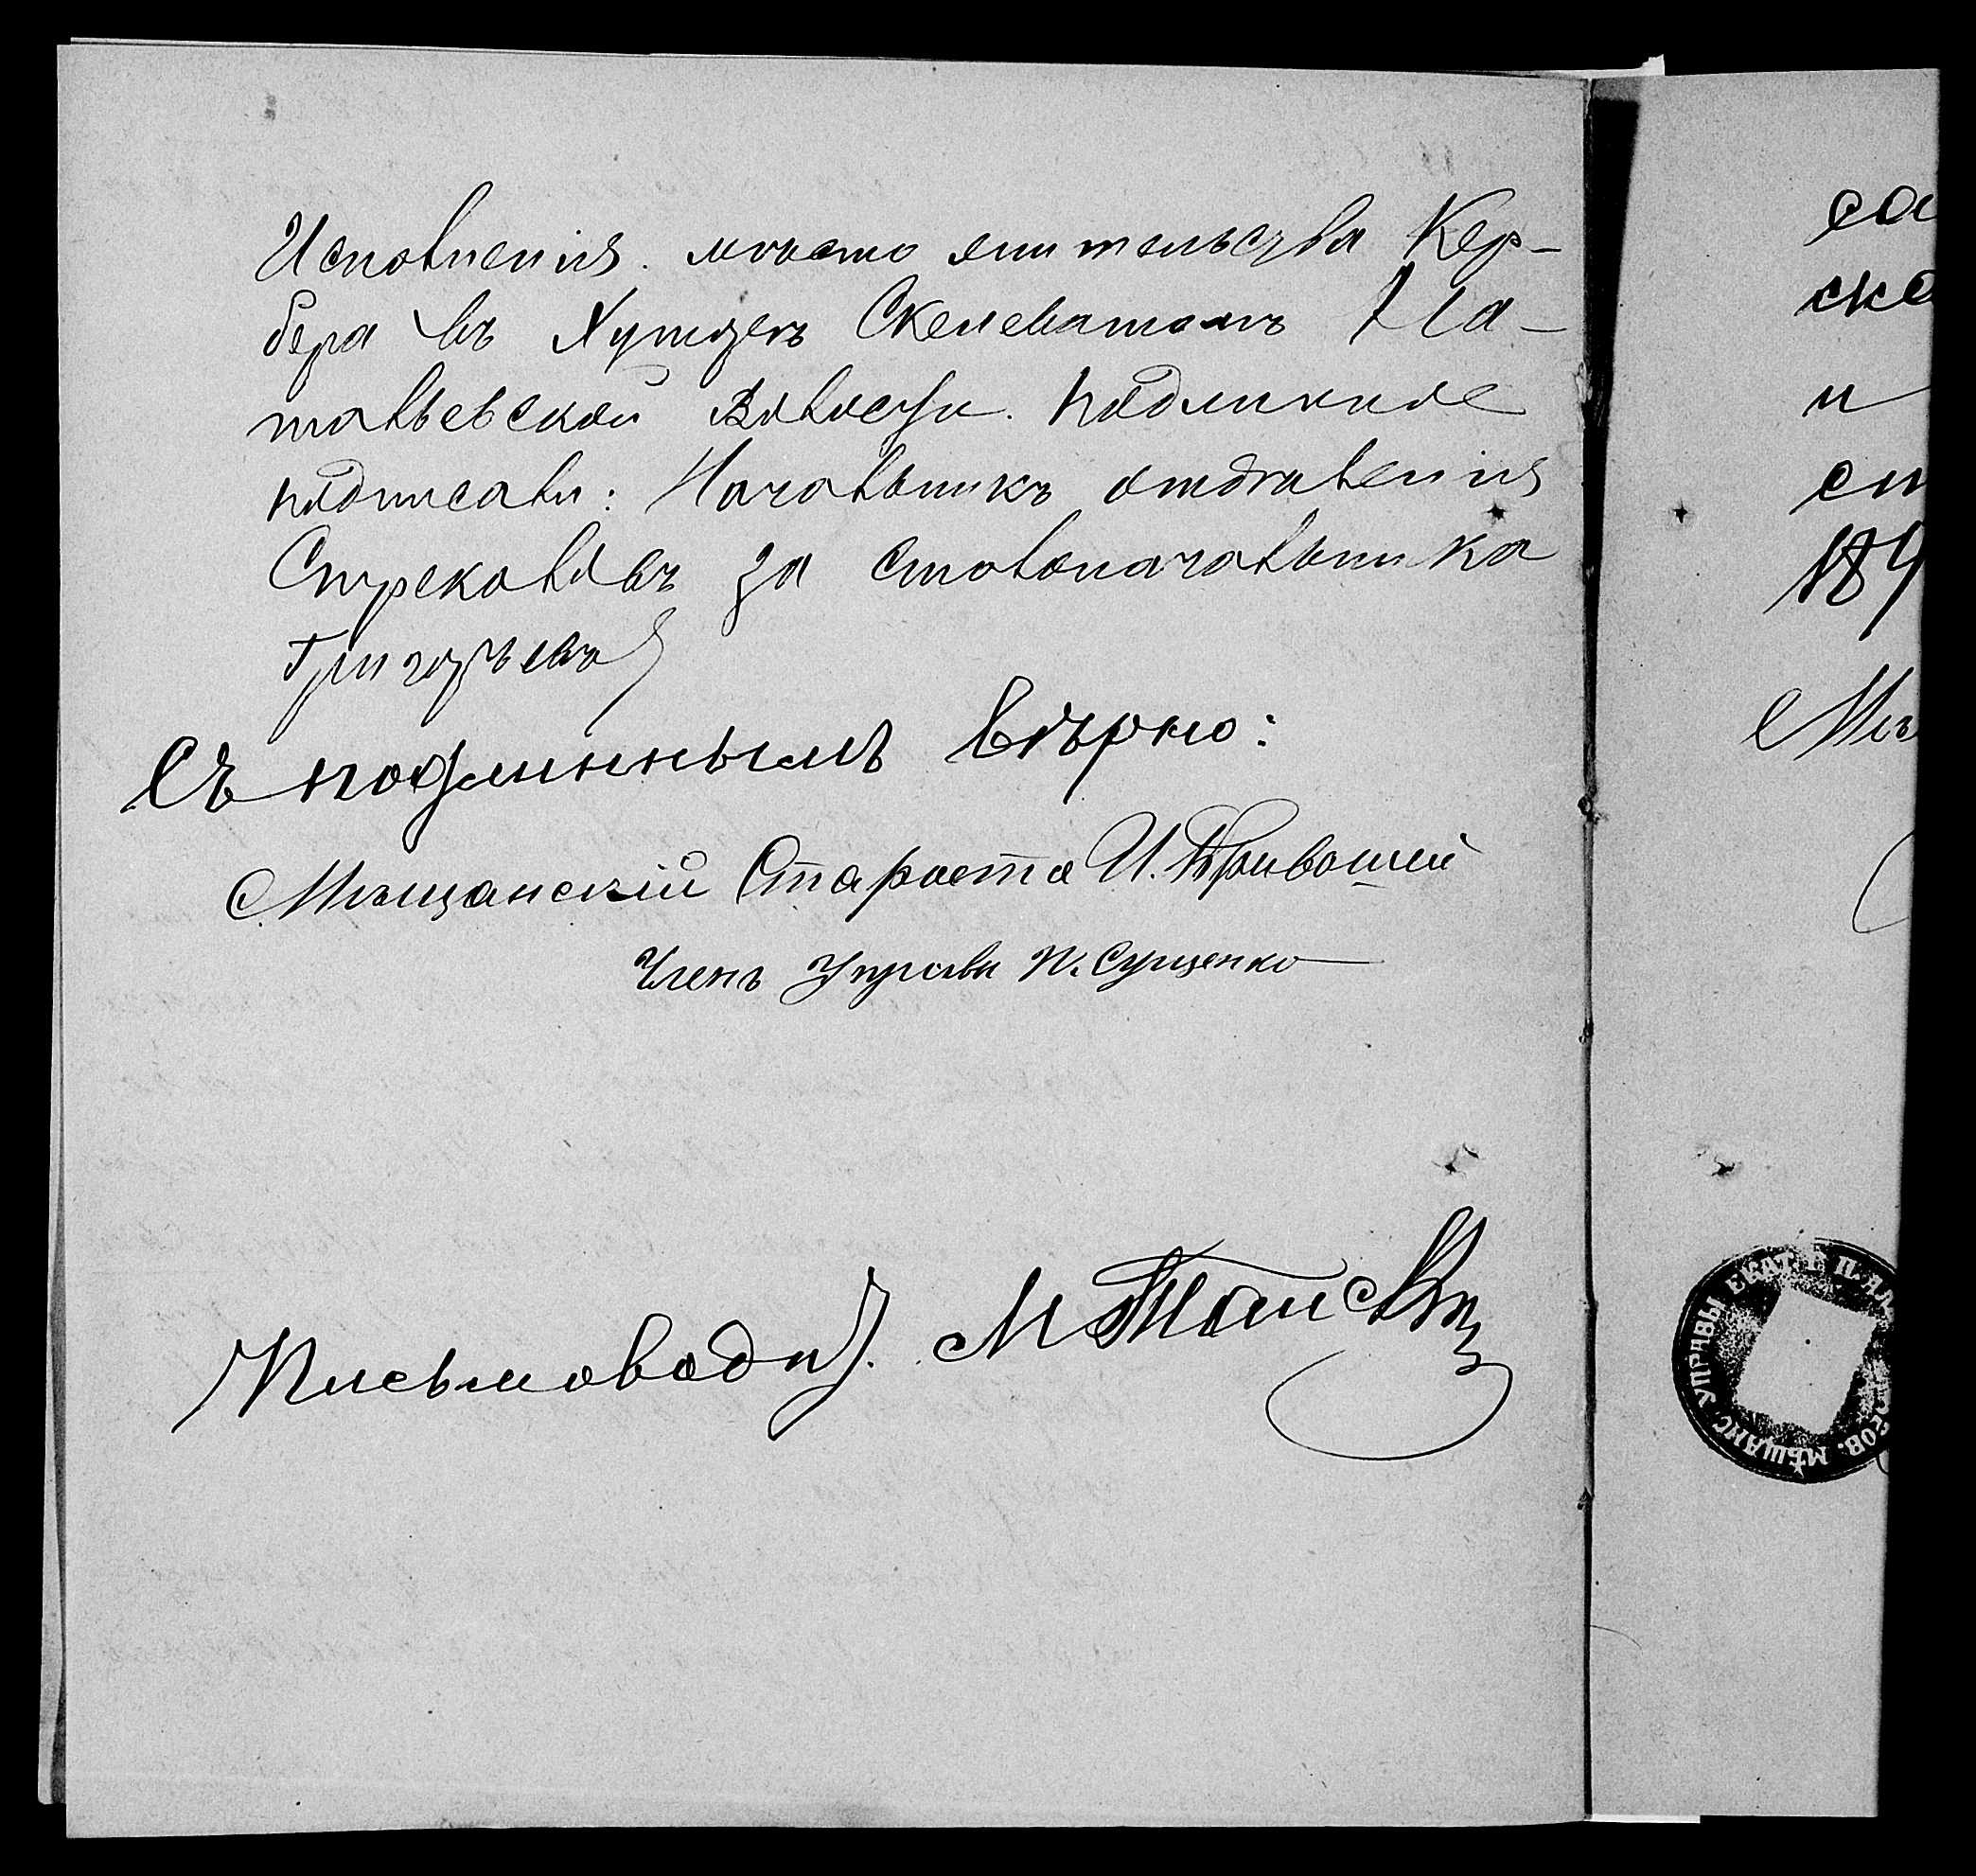 Исполненія. мѣсто жительства Кер-
бера въ Хуторѣ Скелеватомъ На-
тальевской Волости. Подлинное
подписали: Начальникъ отдѣленія
Стрекаловъ за столоначальника
Григорьевъ
Съ подлиннымъ вѣрно:
Мѣщанскій Староста И. Кривошей
Членъ Управы И. Сущенко
Письмоводит. М
са
ске
и
189
Мѣ
МѢЩАНС. УПРАВЫ ЕКАТ. Г. ПАВ